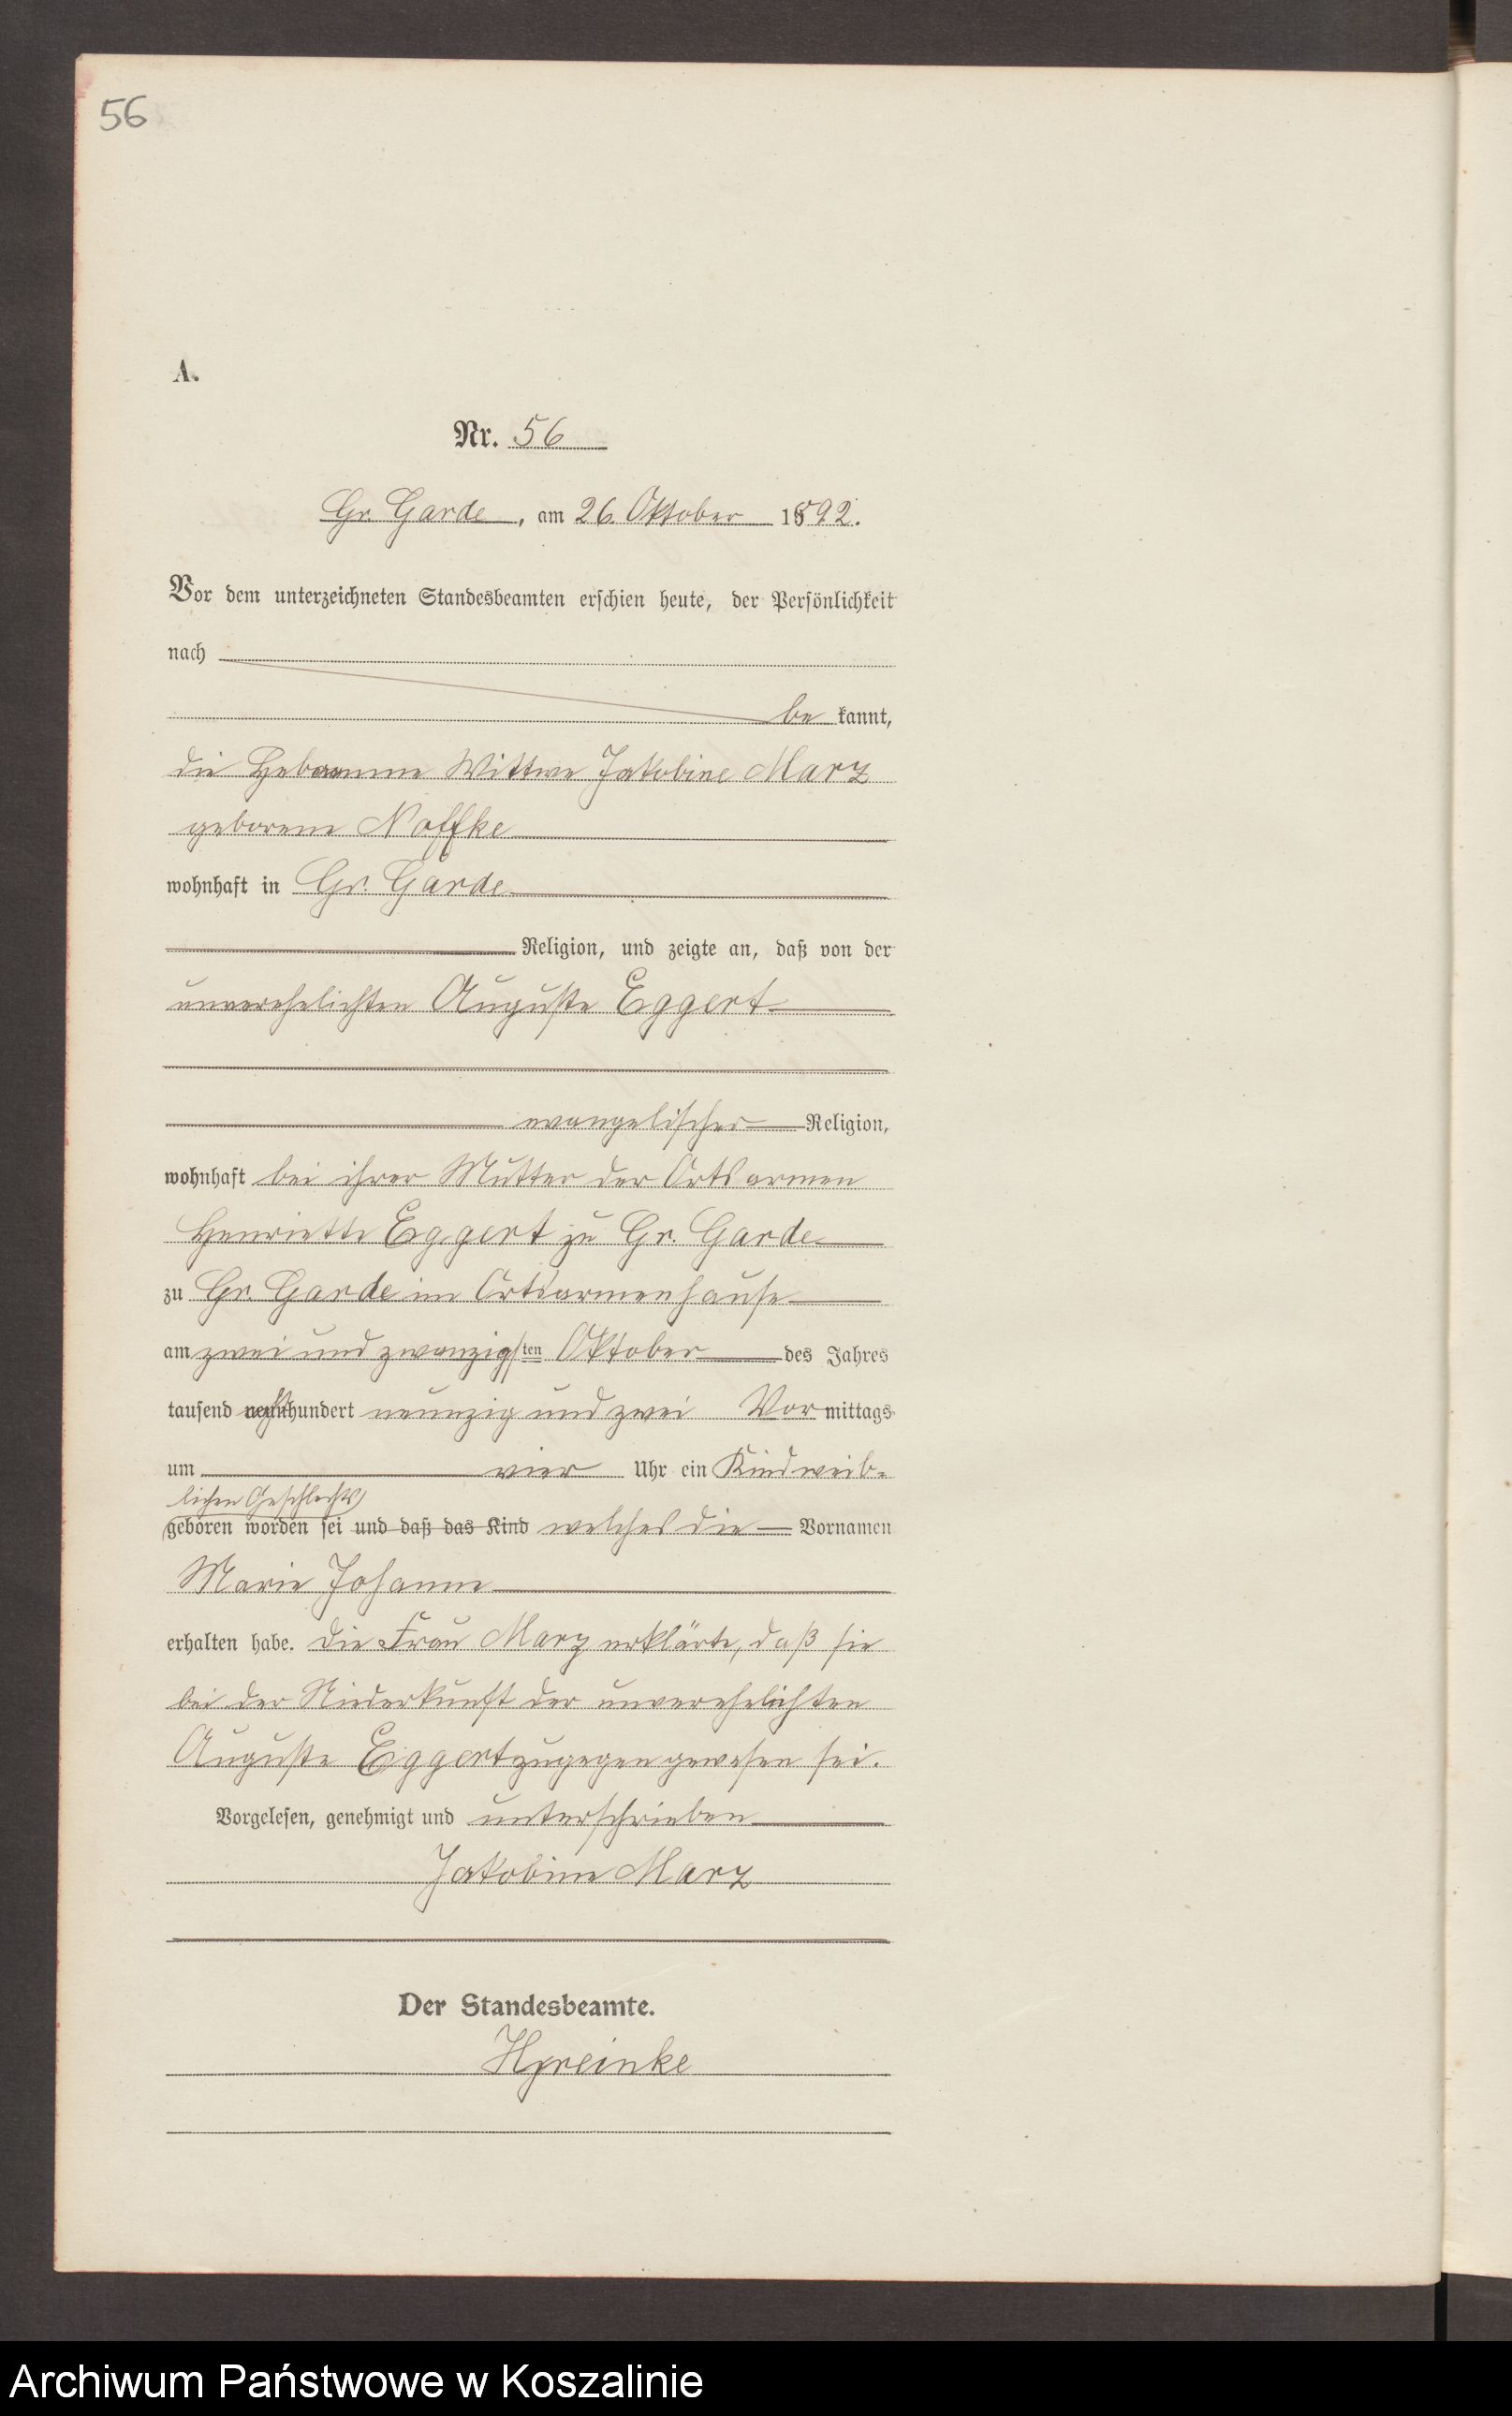 56
A.
Nr. 56
Gr. Garde, am 26. Oktober 1892.
Vor dem unterzeichneten Standesbeamten erschien heute, der Persönlichkeit
nach
be kannt,
die Hebamme Wittwe Jakobine Marz
geborene Noffke
wohnhaft in Gr. Garde
Religion, und zeigte an, daß von der
unverehelichten Auguste Eggert
evangelischer Religion,
wohnhaft bei ihrer Mutter der Ortsarmen
Henriette Eggert zu Gr. Garde
zu Gr. Garde im Ortsarmenhause
am zwei und zwanzigsten Oktober des Jahres
tausend achthundert neunzig und zwei Vormittags
um vier Uhr ein Kind weib-
lichen Geschlechts
geboren worden sei und daß das Kind welches die Vornamen
Marie Johanne
erhalten habe. Die Frau Marz erklärte, daß sie
bei der Niederkunft der unverehelichten
Auguste Eggert zugegen gewesen sei.
Vorgelesen, genehmigt und unterschrieben
Jakobine Marz
Der Standesbeamte.
Archiwum Państwowe w Koszalinie